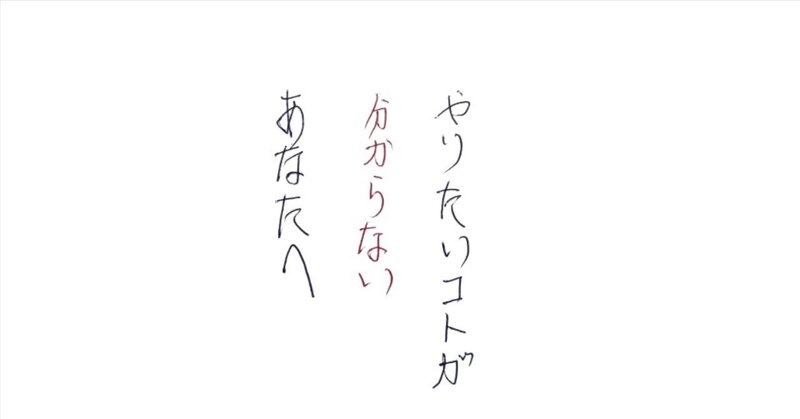 やりたいコトが
分からない
あなたへ